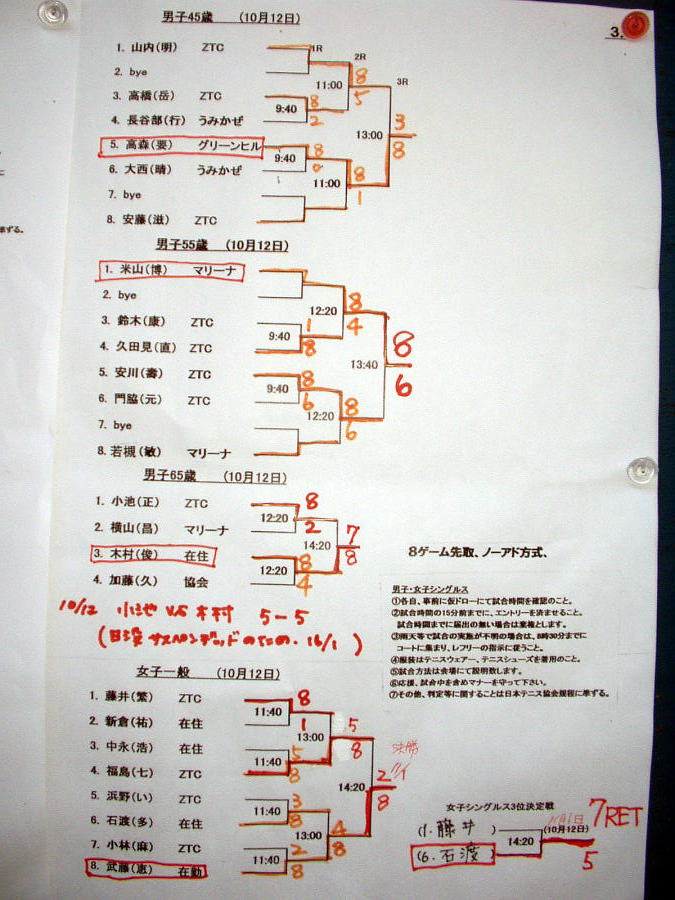 3.
男子45歳 (10月12日)
1R
2R
3R
1. 山内(明) ZTC
2. bye
11:00
8
5
3. 高橋(岳) ZTC
9:40
8
2
4. 長谷部(行) うみかぜ
13:00
3
8
5. 高森(要) グリーンヒル
9:40
8
0
6. 大西(晴) うみかぜ
11:00
8
1
7. bye
8. 安藤(滋) ZTC
男子55歳 (10月12日)
1. 米山(博) マリーナ
2. bye
12:20
8
4
3. 鈴木(康) ZTC
9:40
1
8
4. 久田見(直) ZTC
13:40
8
6
5. 安川(壽) ZTC
9:40
8
6
6. 門脇(元) ZTC
12:20
8
6
7. bye
8. 若槻(敏) マリーナ
男子65歳 (10月12日)
1. 小池(正) ZTC
12:20
8
2
2. 横山(昌) マリーナ
14:20
7
8
3. 木村(俊) 在住
12:20
8
4
4. 加藤(久) 協会
10/12 小池 VS 木村 5-5
(日没サスペンデッドのための. 16/1)
8ゲーム先取、ノーアド方式、
男子・女子シングルス
①各自、事前に仮ドローにて試合時間を確認のこと。
②試合時間の15分前までに、エントリーを済ませること。
試合時間までに届出の無い場合は棄権とします。
③雨天等で試合の実施が不明の場合は、8時30分までに
コートに集まり、レフリーの指示に従うこと。
④服装はテニスウェアー、テニスシューズを着用のこと。
⑤試合方法は会場にて説明致します。
⑥応援、試合中を含めマナーを守って下さい。
⑦その他、判定等に関することは日本テニス協会規程に準ずる。
女子一般 (10月12日)
1. 藤井(繁) ZTC
11:40
8
1
2. 新倉(祐) 在住
13:00
5
8
3. 中永(浩) 在住
11:40
5
8
4. 福島(七) ZTC
14:20
決勝
2
8
5. 浜野(い) ZTC
11:40
3
8
6. 石渡(多) 在住
13:00
4
8
7. 小林(麻) ZTC
11:40
2
8
8. 武藤(恵) 在勤
女子シングルス3位決定戦
(10月12日)
7RET
(1. 藤井)
14:20
(6. 石渡)
5